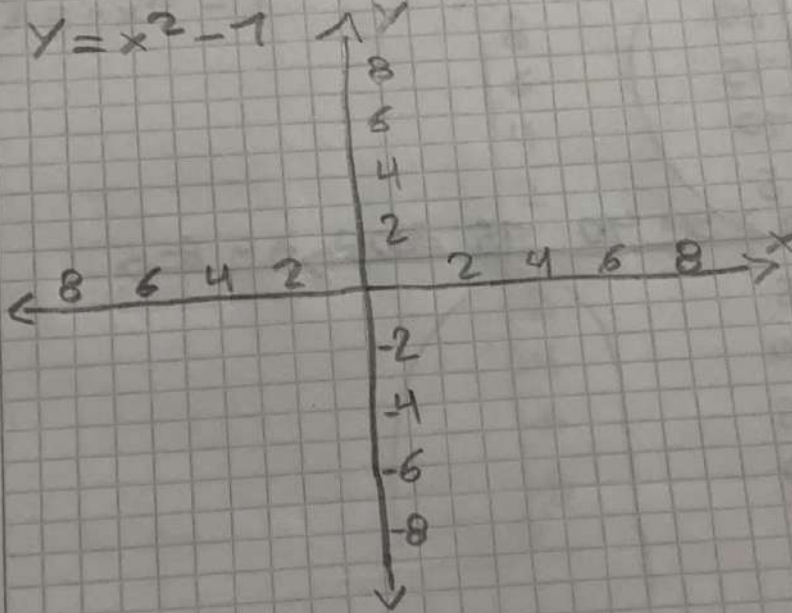 y = x² - 1
y
8
6
4
2
8 6 4 2 2 4 6 8 x
-2
-4
-6
-8